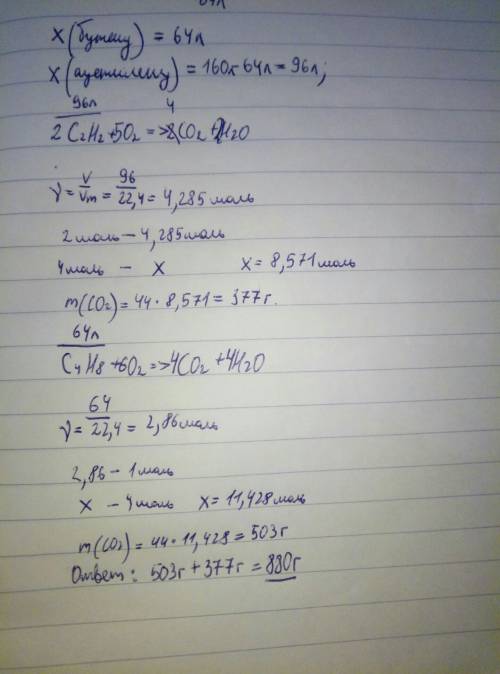 64л
X (бутену) = 64л
X (ацетилену) = 160л 64л = 96л;
96л 4
2 C2H2 + 5O2 => CO2 + 2H2O
γ = V/Vm = 96/22,4 = 4,285 моль
2 моль - 4,285 моль
4 моль - X X = 8,571 моль
m(CO2) = 44 · 8,571 = 377 г.
64л
C4H8 + 6O2 => 4CO2 + 4H2O
γ = 64/22,4 = 2,86 моль
2,86 - 1 моль
X - 4 моль X = 11,428 моль
m(CO2) = 44 * 11,428 = 503 г
Ответ: 503 г + 377 г = 880 г